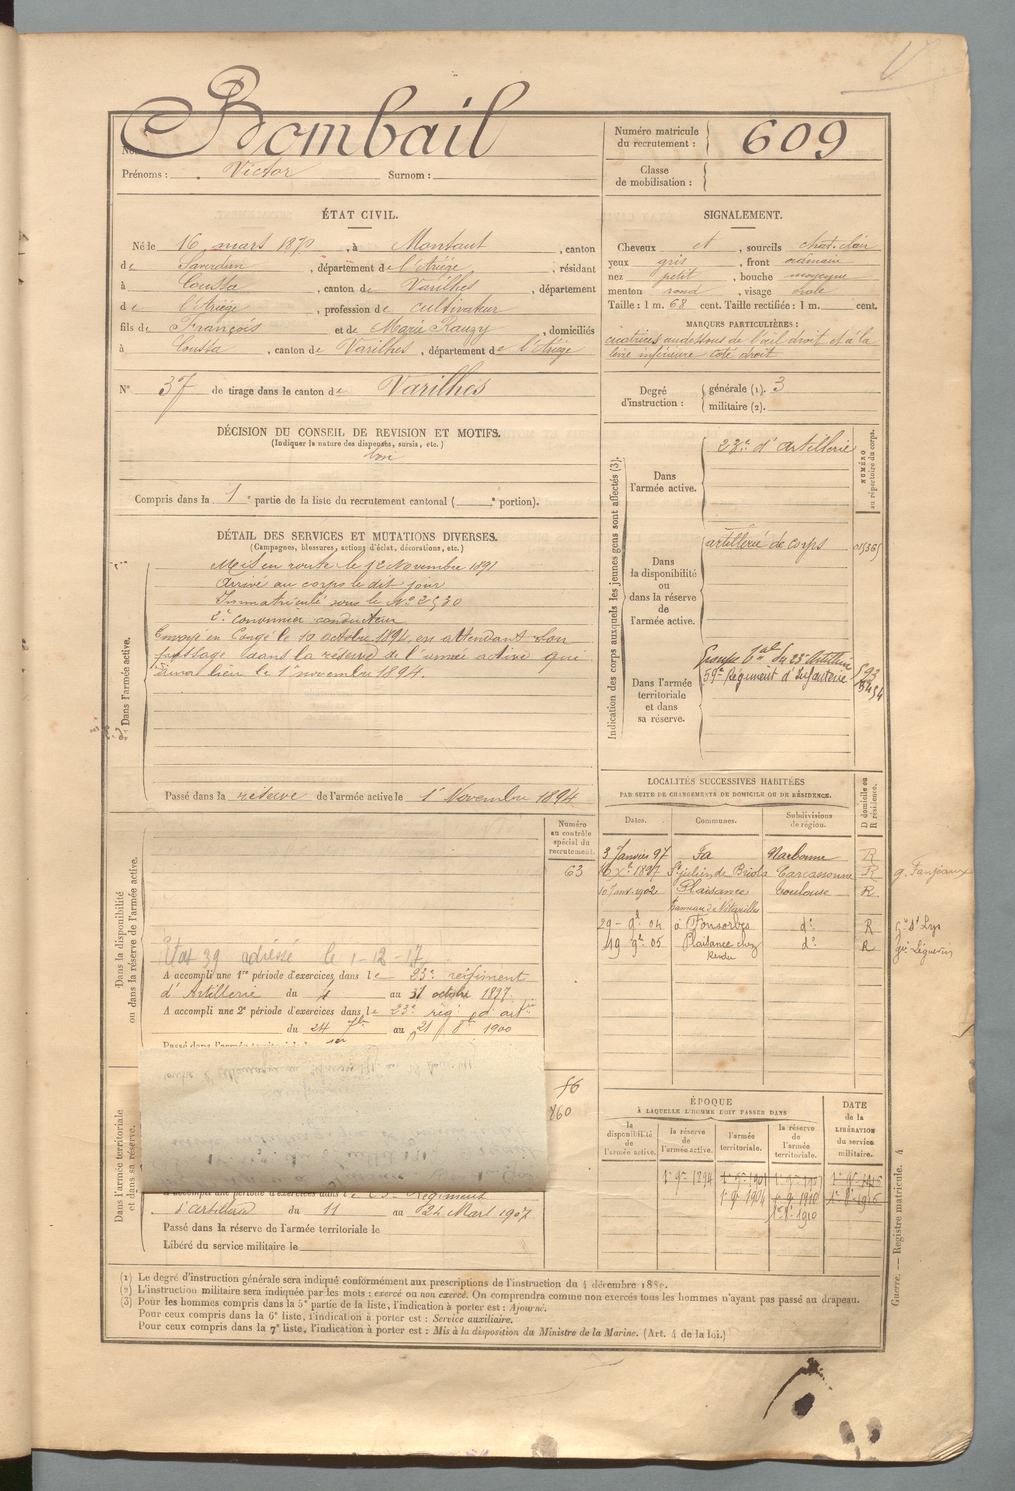 Bombail
Nom :
Prénoms : Victor Surnom :
Numéro matricule du recrutement : 609
Classe de mobilisation :
ÉTAT CIVIL.
Né le 16 mars 1870, à Montaut, canton
de Saverdun, département de l'Ariège, résidant
à Coussa, canton de Varilhes, département
de l'Ariège, profession de cultivateur
fils de François et de Marie Rauzy, domiciliés
à Coussa, canton de Varilhes, département de l'Ariège
N° 37 de tirage dans le canton de Varilhes
SIGNALEMENT.
Cheveux et, sourcils chat. clair
yeux gris, front ordinaire
nez petit, bouche moyenne
menton rond, visage ovale
Taille : 1 m. 68 cent. Taille rectifiée : 1 m. cent.
MARQUES PARTICULIÈRES :
cicatrices au dessous de l'œil droit et à la
lèvre inférieure côté droit
Degré d'instruction : générale (1). 3
militaire (2).
DÉCISION DU CONSEIL DE REVISION ET MOTIFS.
(Indiquer la nature des dispenses, sursis, etc.)
bon
Compris dans la 1e partie de la liste du recrutement cantonal ( e portion).
DÉTAIL DES SERVICES ET MUTATIONS DIVERSES.
(Campagnes, blessures, actions d'éclat, décorations, etc.)
Dans l'armée active.
Mis en route le Novembre 1891
Arrivé au corps le dit jour
Immatriculé sous le No 2530
2e canonnier conducteur
Envoyé en Congé le 10 octobre 1894, en attendant son
passage dans la réserve de l'armée active qui
aura lieu le 1er novembre 1894.
Passé dans la réserve de l'armée active le 1er Novembre 1894
Indication des corps auxquels les jeunes gens sont affectés (3).
NUMÉRO au répertoire du corps.
Dans l'armée active.
23e d'artillerie
Dans la disponibilité ou dans la réserve de l'armée active.
artillerie de corps 015365
Dans l'armée territoriale et dans sa réserve.
Groupe tal du 23e Artillerie
59e Régiment d'Infanterie
LOCALITÉS SUCCESSIVES HABITÉES
PAR SUITE DE CHANGEMENTS DE DOMICILE OU DE RÉSIDENCE.
Dates. Communes. Subdivisions de région. D domicile ou R résidence.
3 Janvier 97 Fa Narbonne R
16 Xe 1897 St Julien de Briola Carcassonne R g. Fanjeaux
10 Janv. 1902 Plaisance Toulouse R
hameau de
29 - 04 à Fonsorbes do R St Lys
19 05 Plaisance chez do R Léguevin
Rendu
Dans la disponibilité ou dans la réserve de l'armée active.
Numéro au contrôle spécial du recrutement.
63
Etat 39 adressé le 1-12-17
A accompli une 1re période d'exercices dans le 23e régiment
d'Artillerie du 4 au 31 octobre 1897
A accompli une 2e période d'exercices dans le 23e rég. d'artie
du 24 7bre au 21 8bre 1900
Passé dans l'armée territoriale
Dans l'armée territoriale et dans sa réserve.
760
A accompli une période d'exercices dans le Régiment
d'artillerie du 11 au 24 Mars 1907
Passé dans la réserve de l'armée territoriale le
Libéré du service militaire le
ÉPOQUE
À LAQUELLE L'HOMME DOIT PASSER DANS
la disponibilité de l'armée active. la réserve de l'armée active. l'armée territoriale. la réserve de l'armée territoriale. DATE de la LIBÉRATION du service militaire.
(1) Le degré d'instruction générale sera indiqué conformément aux prescriptions de l'instruction du 4 décembre 1889.
(2) L'instruction militaire sera indiquée par les mots : exercé ou non exercé. On comprendra comme non exercés tous les hommes n'ayant pas passé au drapeau.
(3) Pour les hommes compris dans la 5e partie de la liste, l'indication à porter est : Ajourné.
Pour ceux compris dans la 6e liste, l'indication à porter est : Service auxiliaire.
Pour ceux compris dans la 7e liste, l'indication à porter est : Mis à la disposition du Ministre de la Marine. (Art. 4 de la loi.)
Guerre. — Registre matricule. 4